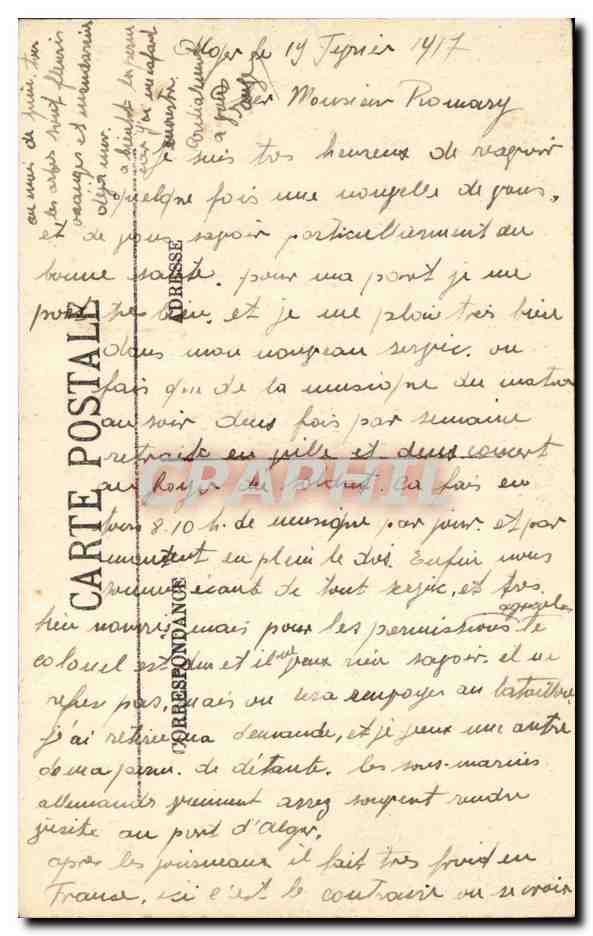 Alger le 19 Fevrier 1917
Cher Monsieur Romary
Je suis tres heureux de reçevoir
quelque fois une nouvelle de vous,
et de vous savoir particullierment en
bonne santé. pour ma part je me
porte tres bien, et je me plais tres bien
dans mon nouveau servic. on
fais que de la musique du matin
au soir deux fois par semaine
retraite en ville et deux concert
au foyer du soldat. ca fais en
tous 8.10 h. de musique par jour. et par
moment en plein le dos. Enfin nous
somme de tout servic, et tres
bien nourris, mais pour les permissions agricoles
le colonel est dur et il ne veux rien savoir. il ne
refuse pas, mais on sera renvoyer au bataillon
j'ai retirer ma demande, et je veux une autre
demain de détente. les sous-marins
allemands viennent assez souvent rendre
visite au port d'Alger.
après les journeaux il fait très froid en
France, ici c'est le contraire on se croir
au mois de juin. tres
et les arbres sont fleuris
oranges et mandarines
deja mur.
a bientôt
CARTE POSTALE
ADRESSE
CORRESPONDANCE
CPAPHIL